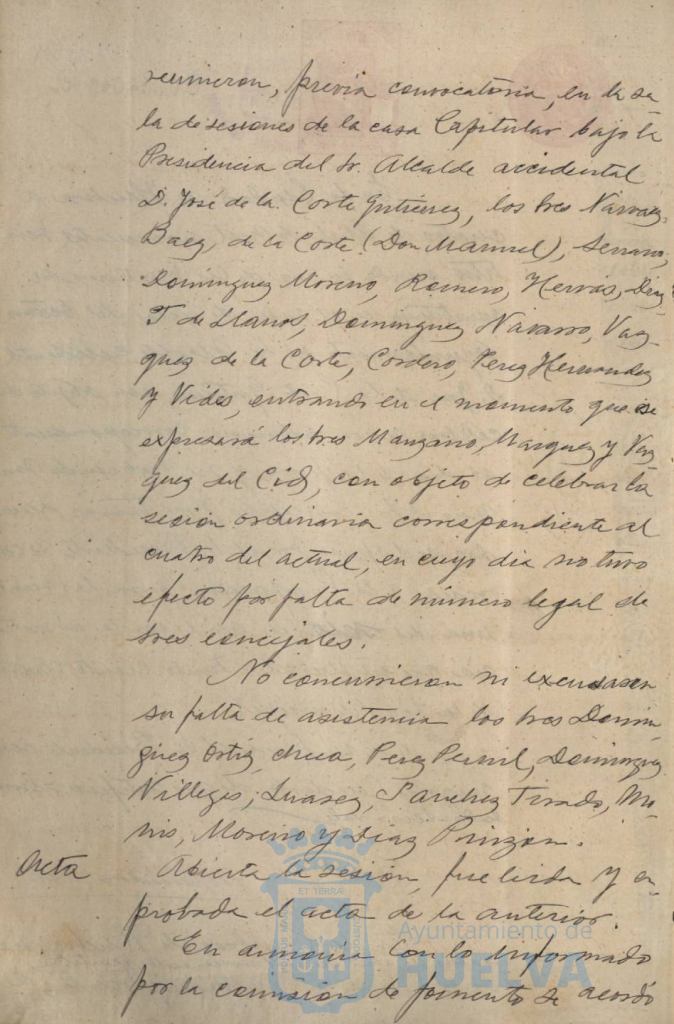 reunieron, previa convocatoria, en la sa-
la de sesiones de la casa Capitular bajo la
Presidencia del Sr. Alcalde accidental
D. José de la Corte Gutierrez, los Sres Narvaez,
Baez, de la Corte (Don Manuel), Serrano,
Dominguez Moreno, Romero, Hervás, Diaz
T de Llanos, Dominguez Navarro, Vaz-
quez de la Corte, Cordero, Perez Hernandez
y Vides, entrando en el momento que se
expresará los Sres Manzano, Marquez y Vaz
quez del Cid, con objeto de celebrar la
sesión ordinaria correspondiente al
cuatro del actual, en cuyo dia no tuvo
efecto por falta de número legal de
Sres concejales.
No concurrieron ni excusaron
su falta de asistencia los Sres Domin
guez Ortiz, Checa, Perez Pernil, Dominguez
Villegas, Suarez, Sanchez Tirado, Mu-
ñis, Moreno y Diaz Pinzon.
Acta
Abierta la sesión, fue leida y a-
probada el acta de la anterior.
En armonia con lo informado
por la comisión de fomento se acordó
ET TERRÆ
Ayuntamiento de
HUELVA